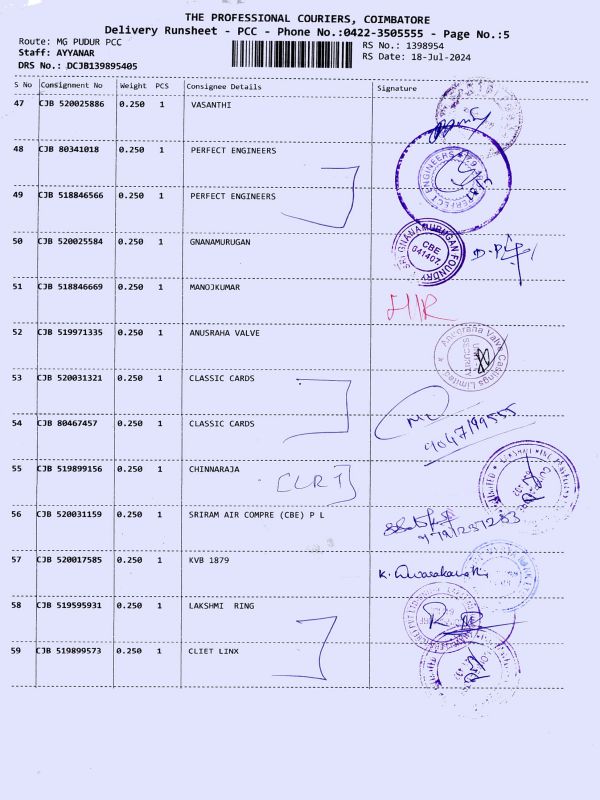 THE PROFESSIONAL COURIERS, COIMBATORE
Delivery Runsheet - PCC - Phone No.:0422-3505555 - Page No.:5
Route: MG PUDUR PCC
RS No.: 1398954
Staff: AYYANAR
RS Date: 18-Jul-2024
DRS No.: DCJB139895405
S No Consignment No Weight PCS Consignee Details Signature
47 CJB 520025886 0.250 1 VASANTHI
48 CJB 80341018 0.250 1 PERFECT ENGINEERS
PERFECT ENGINEERS
49 CJB 518846566 0.250 1 PERFECT ENGINEERS
50 CJB 520025584 0.250 1 GNANAMURUGAN
SRI GNANAMURUGAN FOUNDRY
CBE
641407.
51 CJB 518846669 0.250 1 MANOJKUMAR
HR
52 CJB 519971335 0.250 1 ANUSRAHA VALVE
Valve Castings Limited
SECURITY
53 CJB 520031321 0.250 1 CLASSIC CARDS
54 CJB 80467457 0.250 1 CLASSIC CARDS
55 CJB 519899156 0.250 1 CHINNARAJA
56 CJB 520031159 0.250 1 SRIRAM AIR COMPRE (CBE) P L
57 CJB 520017585 0.250 1 KVB 1879
58 CJB 519595931 0.250 1 LAKSHMI RING
59 CJB 519899573 0.250 1 CLIET LINX